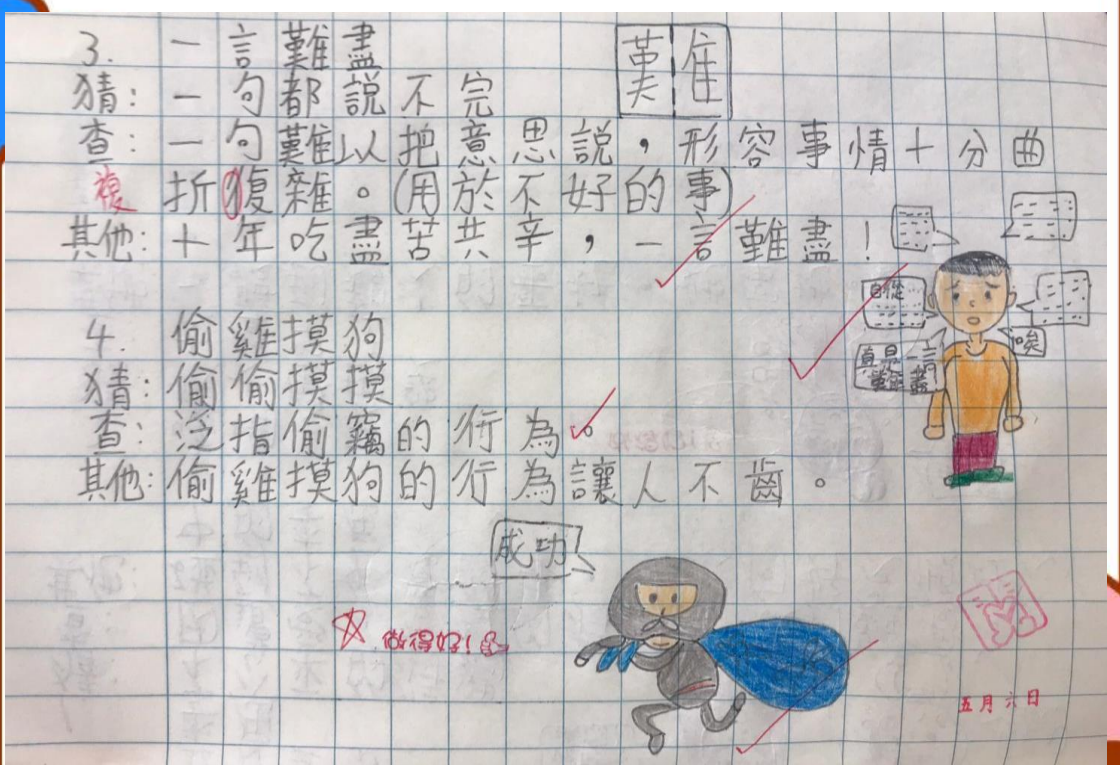 3. 一言難盡
難
猜：一句都說不完
查：一句難以把意思說，形容事情十分曲
複 折複雜。(用於不好的事)
其他：十年吃盡苦共辛，一言難盡！
自從
唉
真是一言難盡
4. 偷雞摸狗
猜：偷偷摸摸
查：泛指偷竊的行為。
其他：偷雞摸狗的行為讓人不齒。
成功
做得好！
五月六日